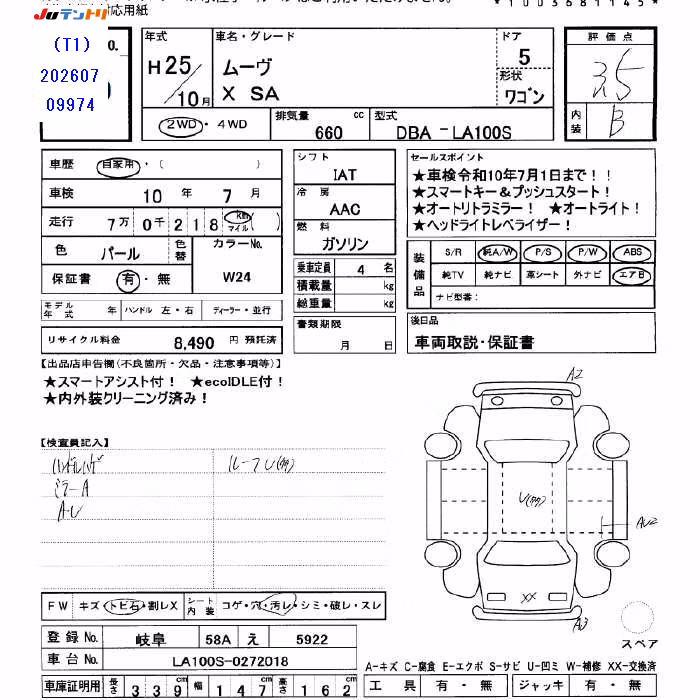 JUテントリ
応用紙
*1003681145*
(T1)
202607
09974
O.
年式
H25/10月
車名・グレード
ムーヴ
X SA
ドア
5
形状
ワゴン
評価点
3.5
内装
B
2WD・4WD
排気量
660
cc
型式
DBA -LA100S
車歴
自家用・( )
車検
10 年 7 月
走行
7万 0千 218 km マイル( )
色
パール
色替
カラーNo.
W24
保証書
有・無
シフト
IAT
冷房
AAC
燃料
ガソリン
乗車定員 4 名
積載量 kg
総重量 kg
セールスポイント
★車検令和10年7月1日まで！！
★スマートキー＆プッシュスタート！
★オートリトラミラー！ ★オートライト！
★ヘッドライトレベライザー！
装備品
S/R 純A/W P/S P/W ABS
純TV 純ナビ 革シート 外ナビ エアB
ナビ型番：
モデル年式 年 ハンドル 左・右 ディーラー・並行
リサイクル料金 8,490 円 預託済
書類期限
月 日
後日品
車両取説・保証書
【出品店申告欄(不良箇所・欠品・注意事項等)】
★スマートアシスト付！ ★ecoIDLE付！
★内外装クリーニング済み！
【検査員記入】
ルーフU(多)
ミラーA
A・U
A2
U(多)
AU2
XX
A3
スペア
FW キズ・トビ石・割レX シート内装 コゲ・穴・汚レ・シミ・破レ・スレ
登録No. 岐阜 58A え 5922
車台No. LA100S-0272018
車庫証明用 長さ 339 幅 147 高さ 162
A-キズ C-腐食 E-エクボ S-サビ U-凹ミ W-補修 XX-交換済
工具 有・無 ジャッキ 有・無